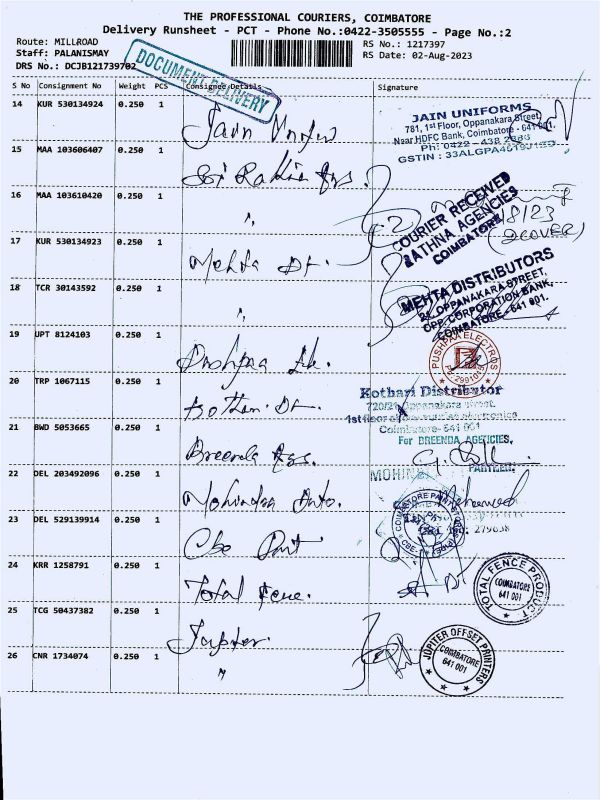 THE PROFESSIONAL COURIERS, COIMBATORE
Delivery Runsheet - PCT - Phone No.:0422-3505555 - Page No.:2
Route: MILLROAD
RS No.: 1217397
Staff: PALANISMAY
RS Date: 02-Aug-2023
DRS No.: DCJB121739702
DOCUMENT DELIVERY
S No Consignment No Weight PCS Consignee Details Signature
14 KUR 530134924 0.250 1
JAIN UNIFORMS
781, 1st Floor, Oppanakara Street,
Near HDFC Bank, Coimbatore - 641 001.
Ph: 0422 - 438
GSTIN : 33ALGPA4619J1
15 MAA 103606407 0.250 1
16 MAA 103610420 0.250 1 "
COURIER RECEIVED
RATHNA AGENCIES
COIMBATORE
17 KUR 530134923 0.250 1 Mehta
MEHTA DISTRIBUTORS
OPPANAKARA STREET,
OPP. CORPORATION BANK,
COIMBATORE - 641 001.
18 TCR 30143592 0.250 1 "
19 UPT 8124103 0.250 1 Pushpaa
PUSHPAA ELECTROS
20 TRP 1067115 0.250 1 Kothari
Kothari Distributor
720/21 Oppanakara Street,
1st floor
Coimbatore- 641 001
21 BWD 5053665 0.250 1 Breenda
For BREENDA AGETICIES,
PARTNER
22 DEL 203492096 0.250 1 Mohindra Auto
MOHIN
23 DEL 529139914 0.250 1 Cbe Paint
COIMBATORE PAINT
24 KRR 1258791 0.250 1 Total Fence
TOTAL FENCE PRODUCT
COIMBATORE
641 001
25 TCG 50437382 0.250 1 Jupiter
JUPITER OFFSET PRINTERS
COIMBATORE
641 001
26 CNR 1734074 0.250 1 "